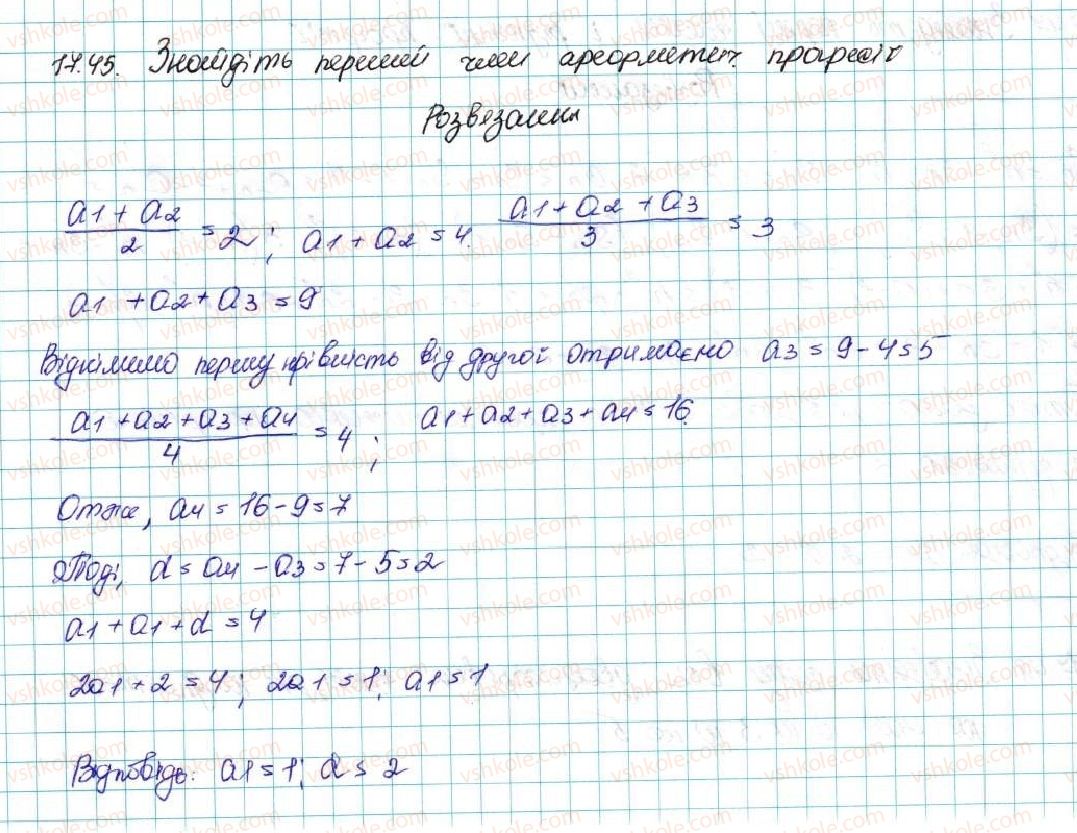 17.45. Знайдіть перший член арифметич. прогресії
Розвязання
a1 + a2 / 2 = 2; a1 + a2 = 4 a1 + a2 + a3 / 3 = 3
a1 + a2 + a3 = 9
Віднімемо першу рівність від другої отримаємо a3 = 9 - 4 = 5
a1 + a2 + a3 + a4 / 4 = 4; a1 + a2 + a3 + a4 = 16.
Отже, a4 = 16 - 9 = 7
Тоді, d = a4 - a3 = 7 - 5 = 2
a1 + a1 + d = 4
2a1 + 2 = 4; 2a1 = 1; a1 = 1
Відповідь: a1 = 1; d = 2